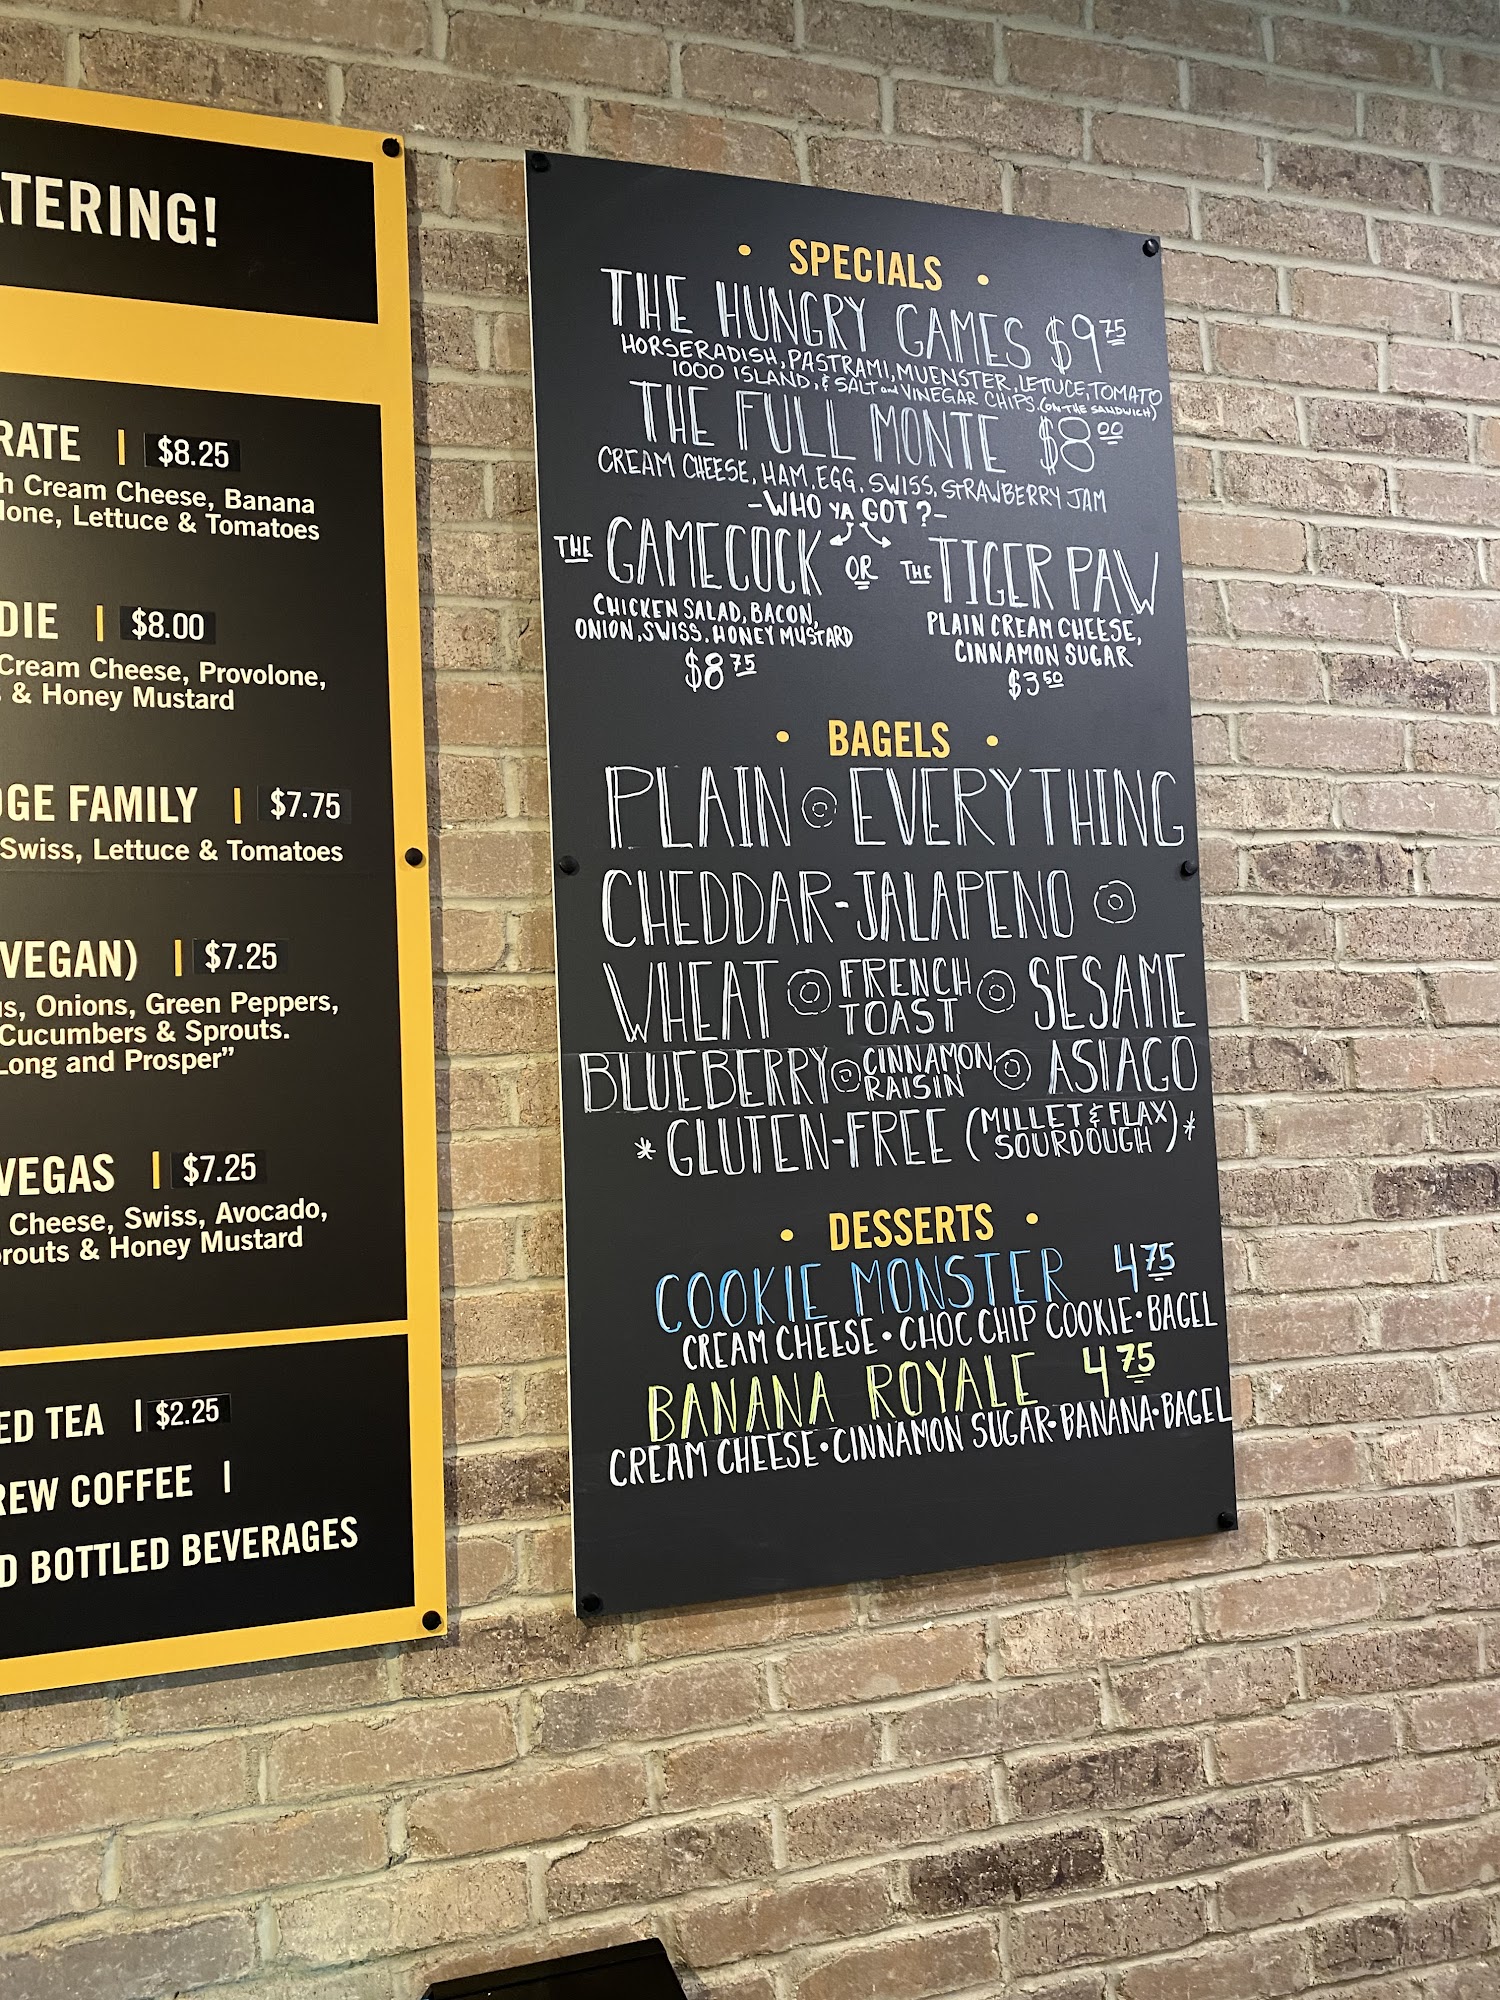 ATERING!
RATE | $8.25
h Cream Cheese, Banana
lone, Lettuce & Tomatoes
DIE | $8.00
Cream Cheese, Provolone,
& Honey Mustard
DGE FAMILY | $7.75
Swiss, Lettuce & Tomatoes
VEGAN) | $7.25
us, Onions, Green Peppers,
Cucumbers & Sprouts.
Long and Prosper”
VEGAS | $7.25
Cheese, Swiss, Avocado,
prouts & Honey Mustard
ED TEA | $2.25
REW COFFEE |
D BOTTLED BEVERAGES
• SPECIALS •
THE HUNGRY GAMES $9 75
HORSERADISH, PASTRAMI, MUENSTER, LETTUCE, TOMATO
1000 ISLAND, & SALT and VINEGAR CHIPS. (ON THE SANDWICH)
THE FULL MONTE $8 00
CREAM CHEESE, HAM, EGG, SWISS, STRAWBERRY JAM
-WHO YA GOT?-
THE GAMECOCK OR THE TIGER PAW
CHICKEN SALAD, BACON,
ONION, SWISS, HONEY MUSTARD
$8 75
PLAIN CREAM CHEESE,
CINNAMON SUGAR
$3 50
• BAGELS •
PLAIN EVERYTHING
CHEDDAR-JALAPENO
WHEAT FRENCH TOAST SESAME
BLUEBERRY CINNAMON RAISIN ASIAGO
* GLUTEN-FREE (MILLET & FLAX SOURDOUGH) *
• DESSERTS •
COOKIE MONSTER 4 75
CREAM CHEESE • CHOC CHIP COOKIE • BAGEL
BANANA ROYALE 4 75
CREAM CHEESE • CINNAMON SUGAR • BANANA • BAGEL